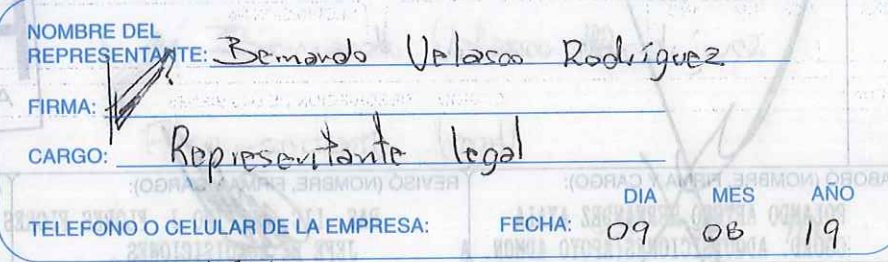 NOMBRE DEL
REPRESENTANTE: Bernardo Velasco Rodriguez
FIRMA:
CARGO: Representante legal
DIA MES AÑO
TELEFONO O CELULAR DE LA EMPRESA: FECHA: 09 08 19